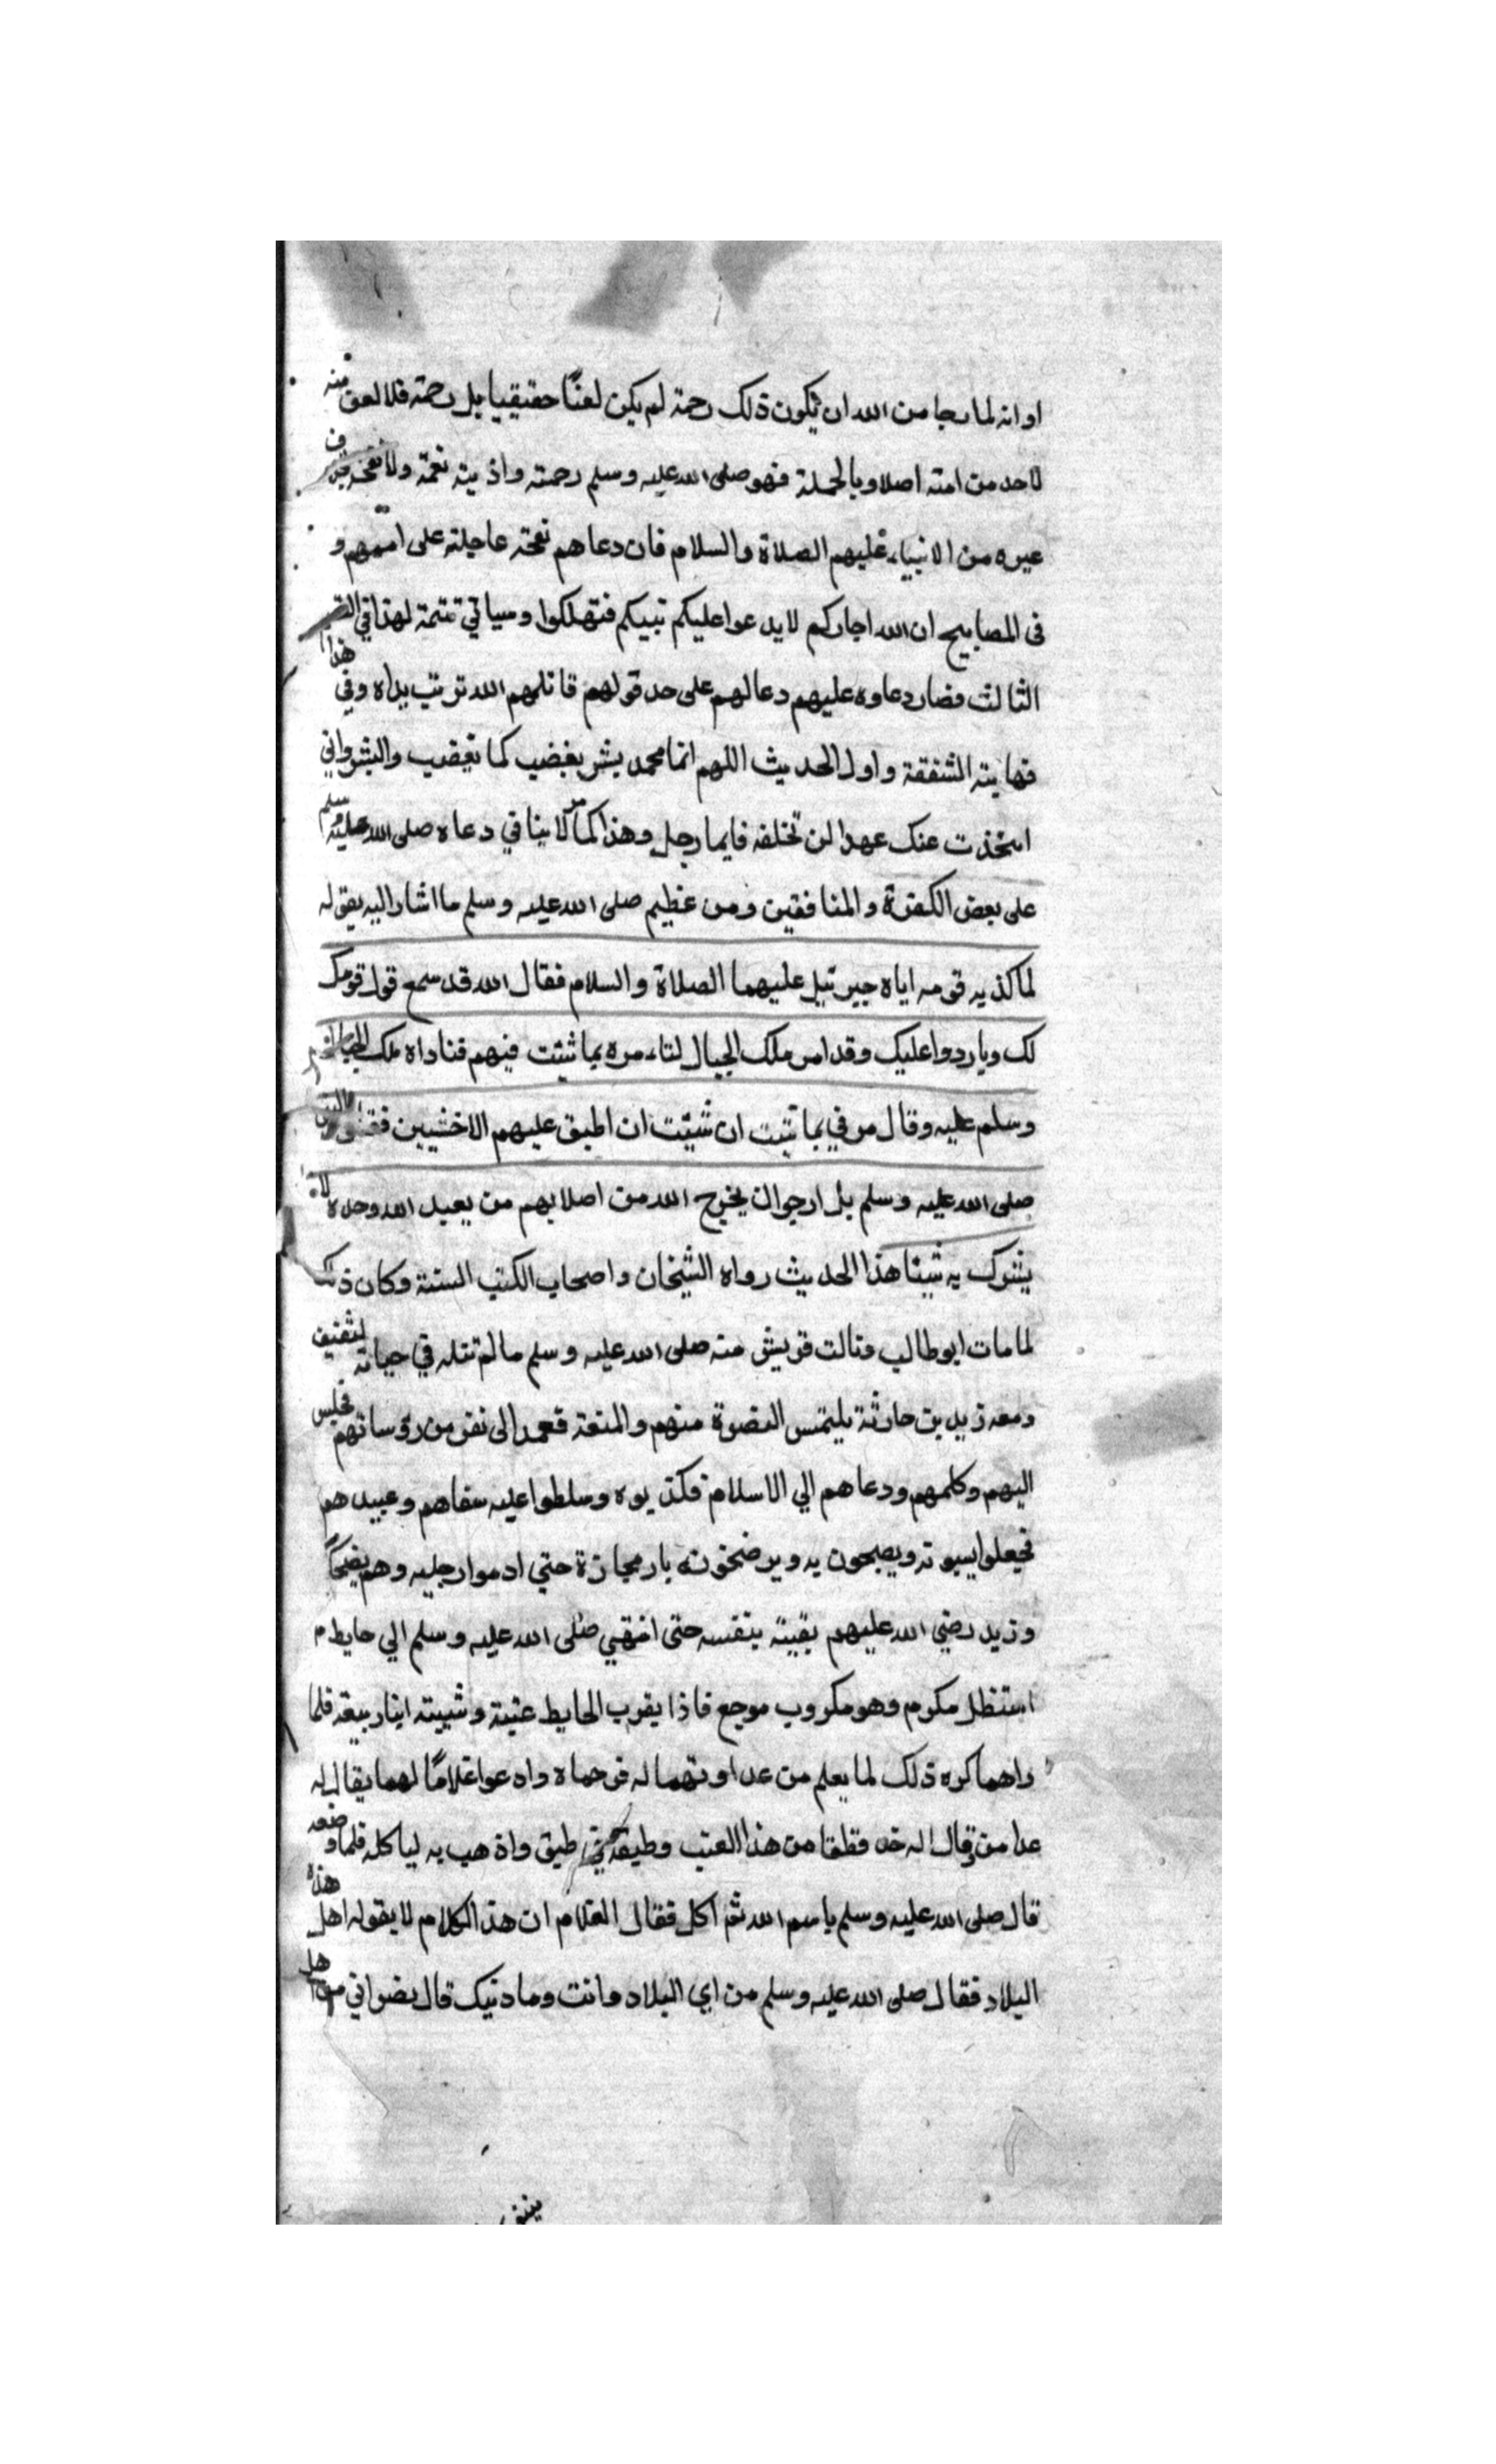 او انه لما رجا من الله ان يكون ذلك رحمة لم يكن لعنًا حقيقيا بل رحمة فلا لعن منه
لاحد من امته اصلا وبالجملة فهو صلى الله عليه وسلم رحمته واذيته نعمة ولا
غيره من الانبياء عليهم الصلاة والسلام فان دعاهم نقمة عاجلته على اممهم و
فى المصابيح ان الله اجاركم لا يدعوا عليكم نبيكم فتهلكوا وسياتي تتمة لهذا في
الثالث فصار دعاوه عليهم دعا لهم على حد قولهم قاتلهم الله تربت يداه وفي هذا
نهاية الشفقة واول الحديث اللهم انما محمد بشر يغضب كما يغضب والبشر واني
اتخذت عنك عهدا لن تخلفه فايما رجل وهذا كما مر لا ينافي دعاه صلى الله عليه وسلم
على بعض الكفرة والمنافقين ومن عظيم صلى الله عليه وسلم ما اشار اليه بقوله
لما كذبه قومه اياه جبرئيل عليهما الصلاة والسلام فقال الله قد سمع قول قومك
لك وما ردوا عليك وقد امر ملك الجبال لتاءمره بما شئت فيهم فناداه ملك الجبال
وسلم عليه وقال مرني بما شئت ان شئت ان اطبق عليهم الاخشبين فقال
صلى الله عليه وسلم بل ارجو ان يخرج الله من اصلابهم من يعبد الله وحده لا
يشرك به شيئا هذا الحديث رواه الشيخان واصحاب الكتب الستة وكان ذلك
لما مات ابو طالب ونالت قريش منه صلى الله عليه وسلم ما لم تنله في حياته لثقيف
ومعه زيد بن حارثة يلتمس النصرة منهم والمنعة فعمد الى نفر من رؤساتهم فجلس
اليهم وكلمهم ودعاهم الي الاسلام فكذبوه وسلطوا عليه سفاهم وعبيدهم
فجعلوا يسبونه ويصيحون به ويرضخونه بالحجازة حتي ادموا رجليه وهم
وزيد رضي الله عليهم يقيته بنفسه حتى انتهي صلى الله عليه وسلم الي حايط م
استظل مكرم وهو مكروب موجع فاذا بقرب الحايط عتبة وشيبته ابنا ربيعة فلما
راهما كره ذلك لما يعلم من عداوتهما له فرحماه وادعوا غلامًا لهما يقال له
عداس وقال له خذ قطفا من هذا العنب وطبقه في طبق واذهب به لياكله فلما وضعه
قال صلى الله عليه وسلم باسم الله ثم اكل فقال الغلام ان هذا الكلام لا يقوله اهل هذه
البلاد فقال صلى الله عليه وسلم من اي البلاد وانت وما دنيك قال نصراني من اهل